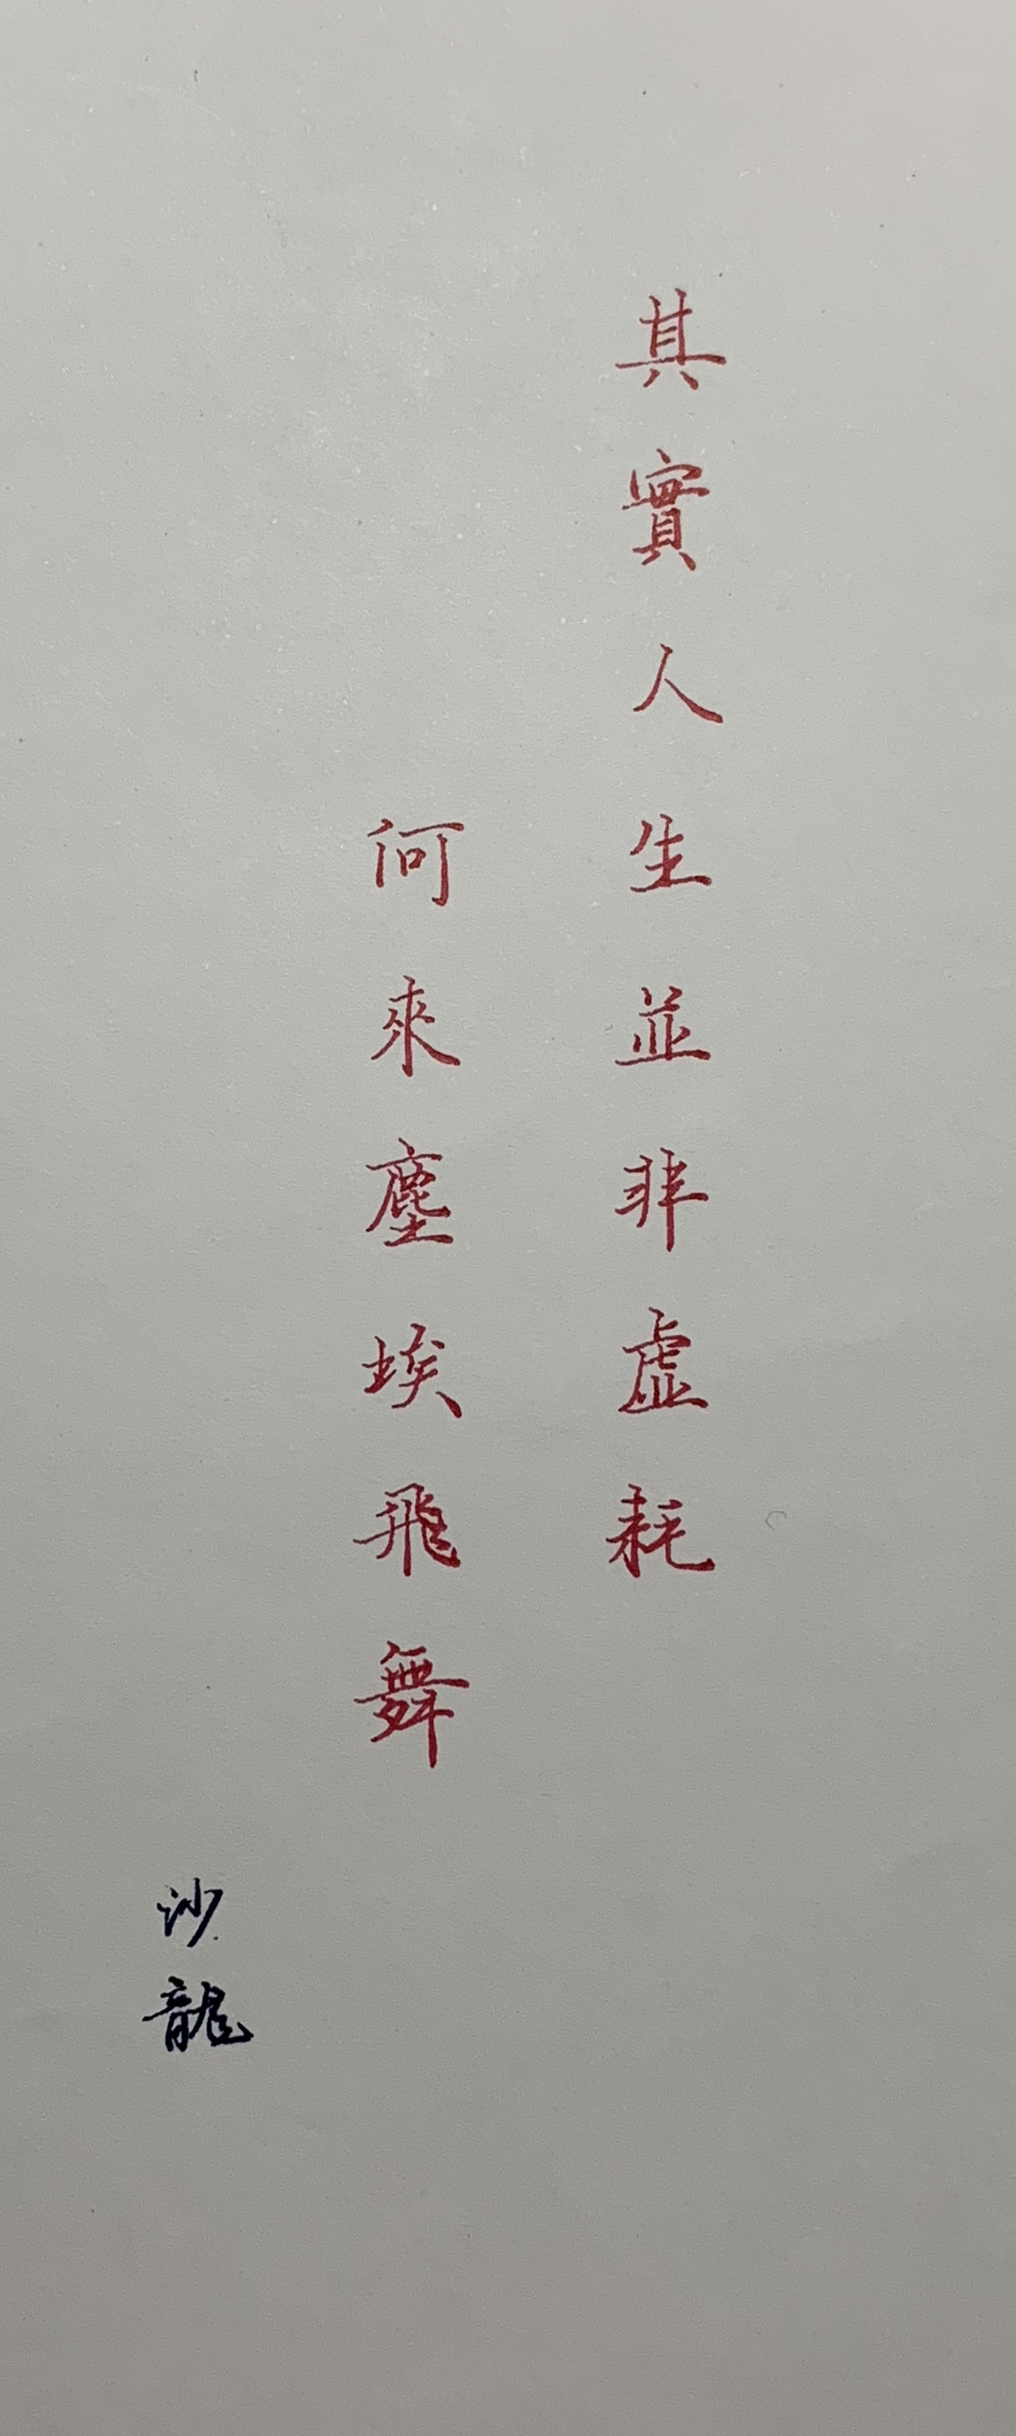 其實人生並非虛耗
何來塵埃飛舞
沙龍